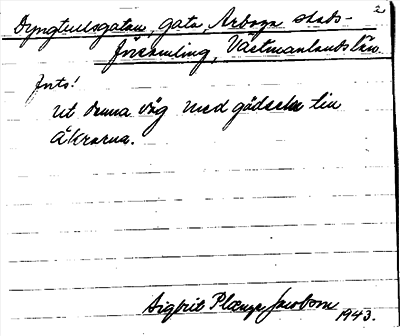 2
Dyngtullsgatan, gata, Arboga stads-
församling, Västmanlands län.
Ut denna väg med gödseln till
åkrarna.
Sigbrit Plænge Jacobson
1943.